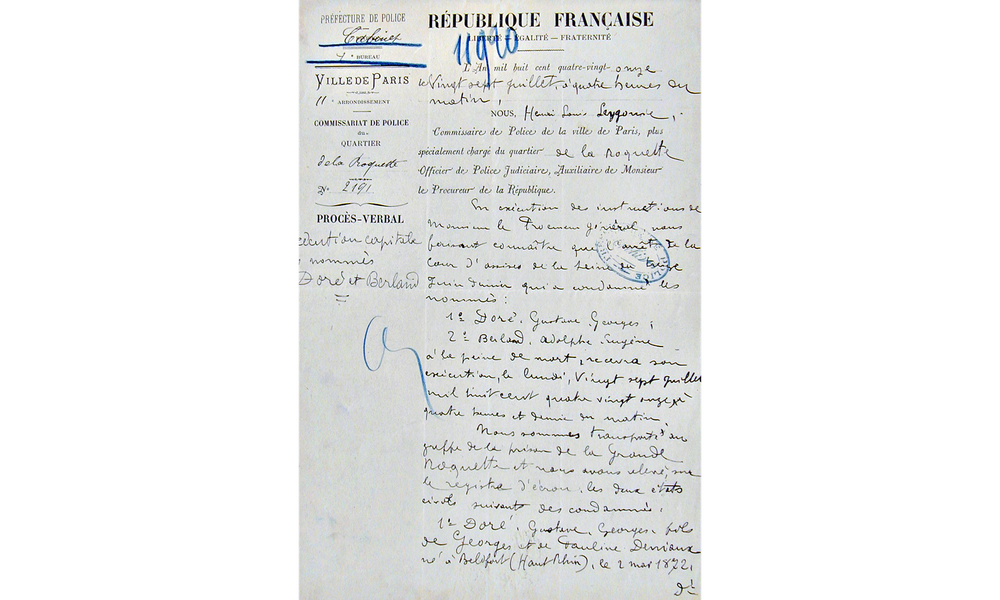 PRÉFECTURE DE POLICE
Cabinet
1er BUREAU
VILLE DE PARIS
11e ARRONDISSEMENT
COMMISSARIAT DE POLICE
du
QUARTIER
de la Roquette
No 2191
PROCÈS-VERBAL
écution capitale
nommés
Doré et Berland
RÉPUBLIQUE FRANÇAISE
LIBERTÉ – ÉGALITÉ – FRATERNITÉ
11920
L'An mil huit cent quatre-vingt-onze
le Vingt sept juillet, à quatre heures du
matin,
NOUS, Henri Louis
Commissaire de Police de la ville de Paris, plus
spécialement chargé du quartier de la Roquette
Officier de Police Judiciaire, Auxiliaire de Monsieur
le Procureur de la République.
En exécution des instructions de
Monsieur le Procureur général, nous
faisant connaître que l'arrêt de la
Cour d'assises de la Seine du treize
Juin dernier qui a condamné les
nommés :
1o Doré, Gustave Georges ;
2o Berland, Adolphe Eugène
à la peine de mort, recevra son
exécution, le lundi, Vingt sept juillet
mil huit cent quatre vingt onze à
quatre heures et demie du matin,
Nous sommes transporté au
greffe de la prison de la Grande
Roquette et nous avons relevé, sur
le registre d'écrou, les deux états
civils suivants des condamnés :
1o Doré, Gustave, Georges, fils
de Georges et de Pauline
né à Belfort (Haut Rhin), le 2 mai 1872,
Dt